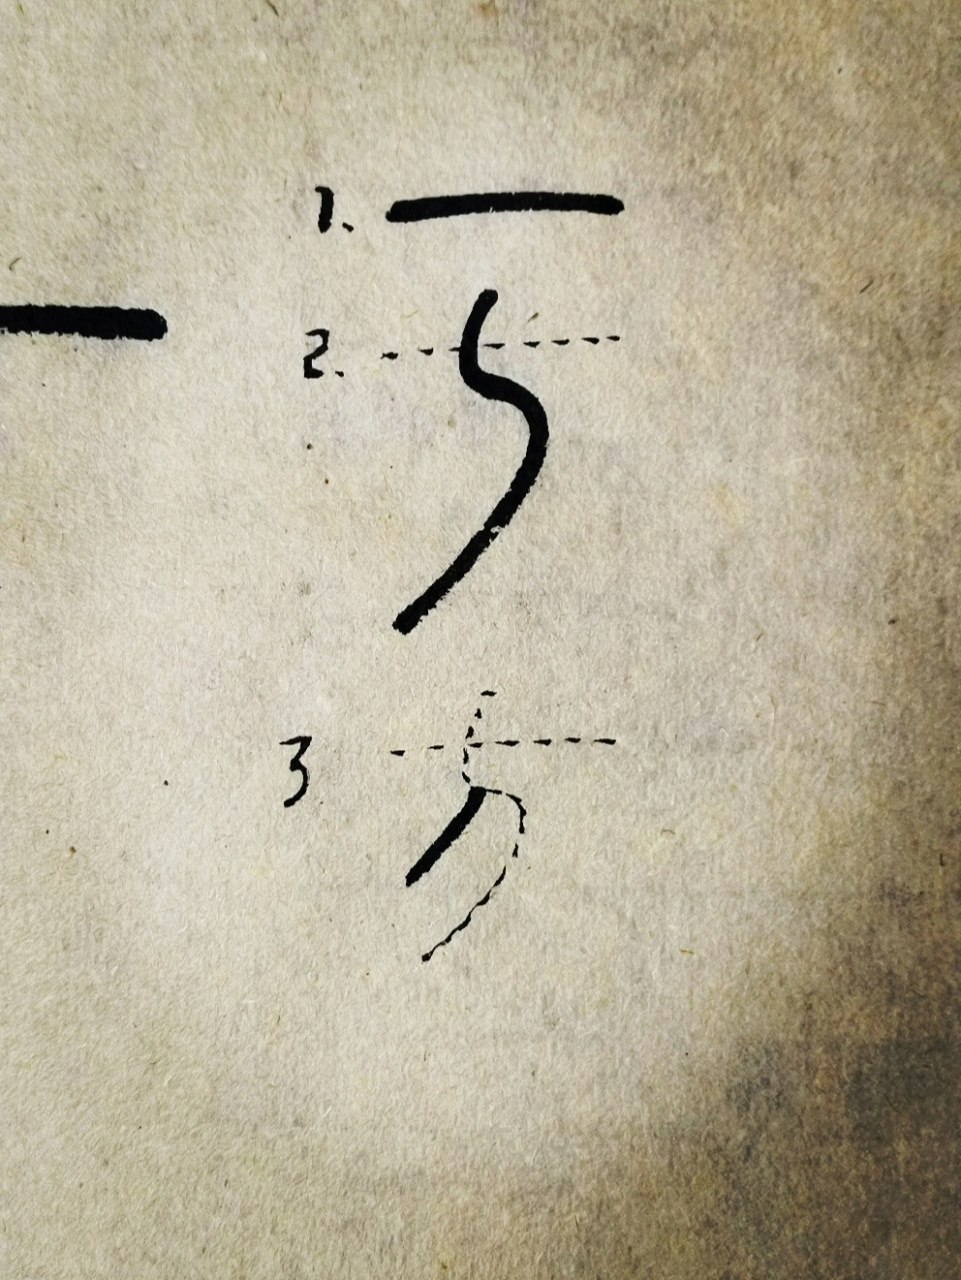 1.
2.
3